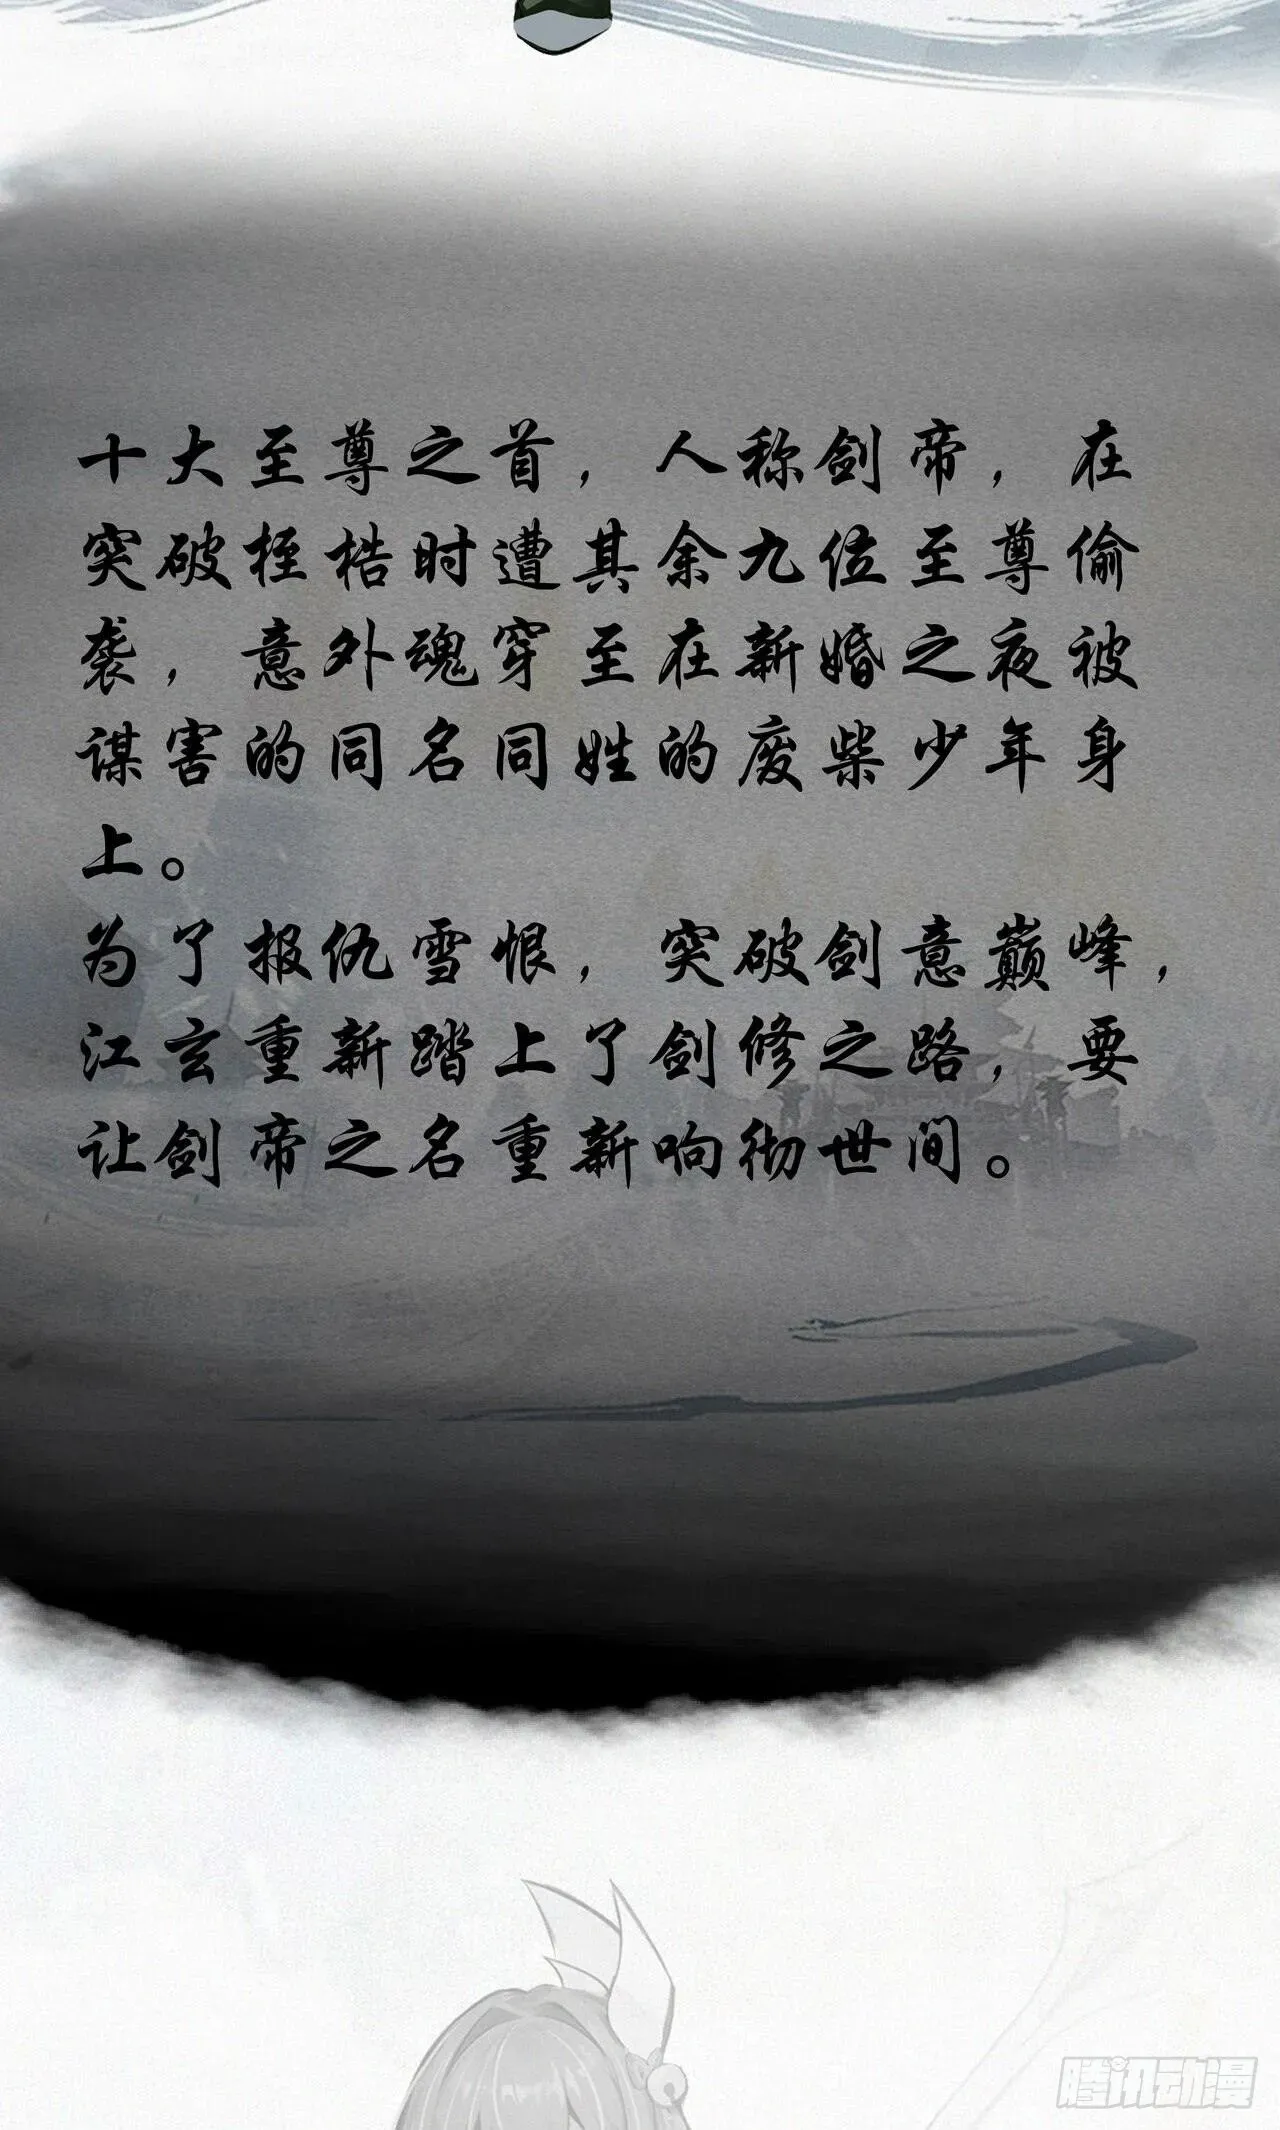 十大至尊之首，人称剑帝，在
突破桎梏时遭其余九位至尊偷
袭，意外魂穿至在新婚之夜被
谋害的同名同姓的废柴少年身
上。
为了报仇雪恨，突破剑意巅峰，
江玄重新踏上了剑修之路，要
让剑帝之名重新响彻世间。
腾讯动漫